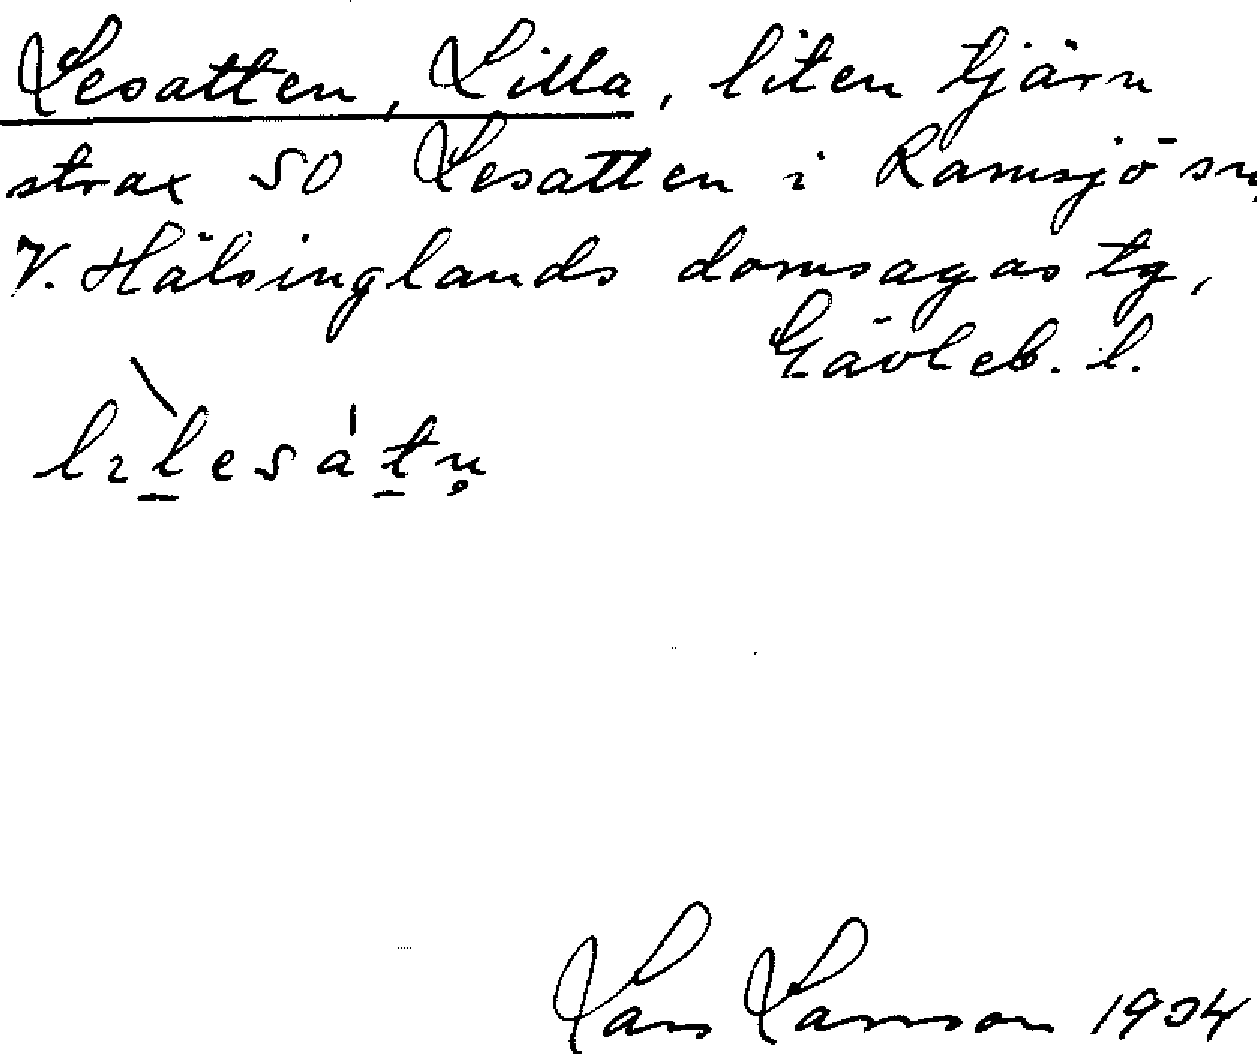 Lesatten, Lilla, liten tjärn
strax SO Lesatten i Ramsjö sn,
V. Hälsinglands domsagas tg,
Gävleb. l.
Lars Larsson 1934